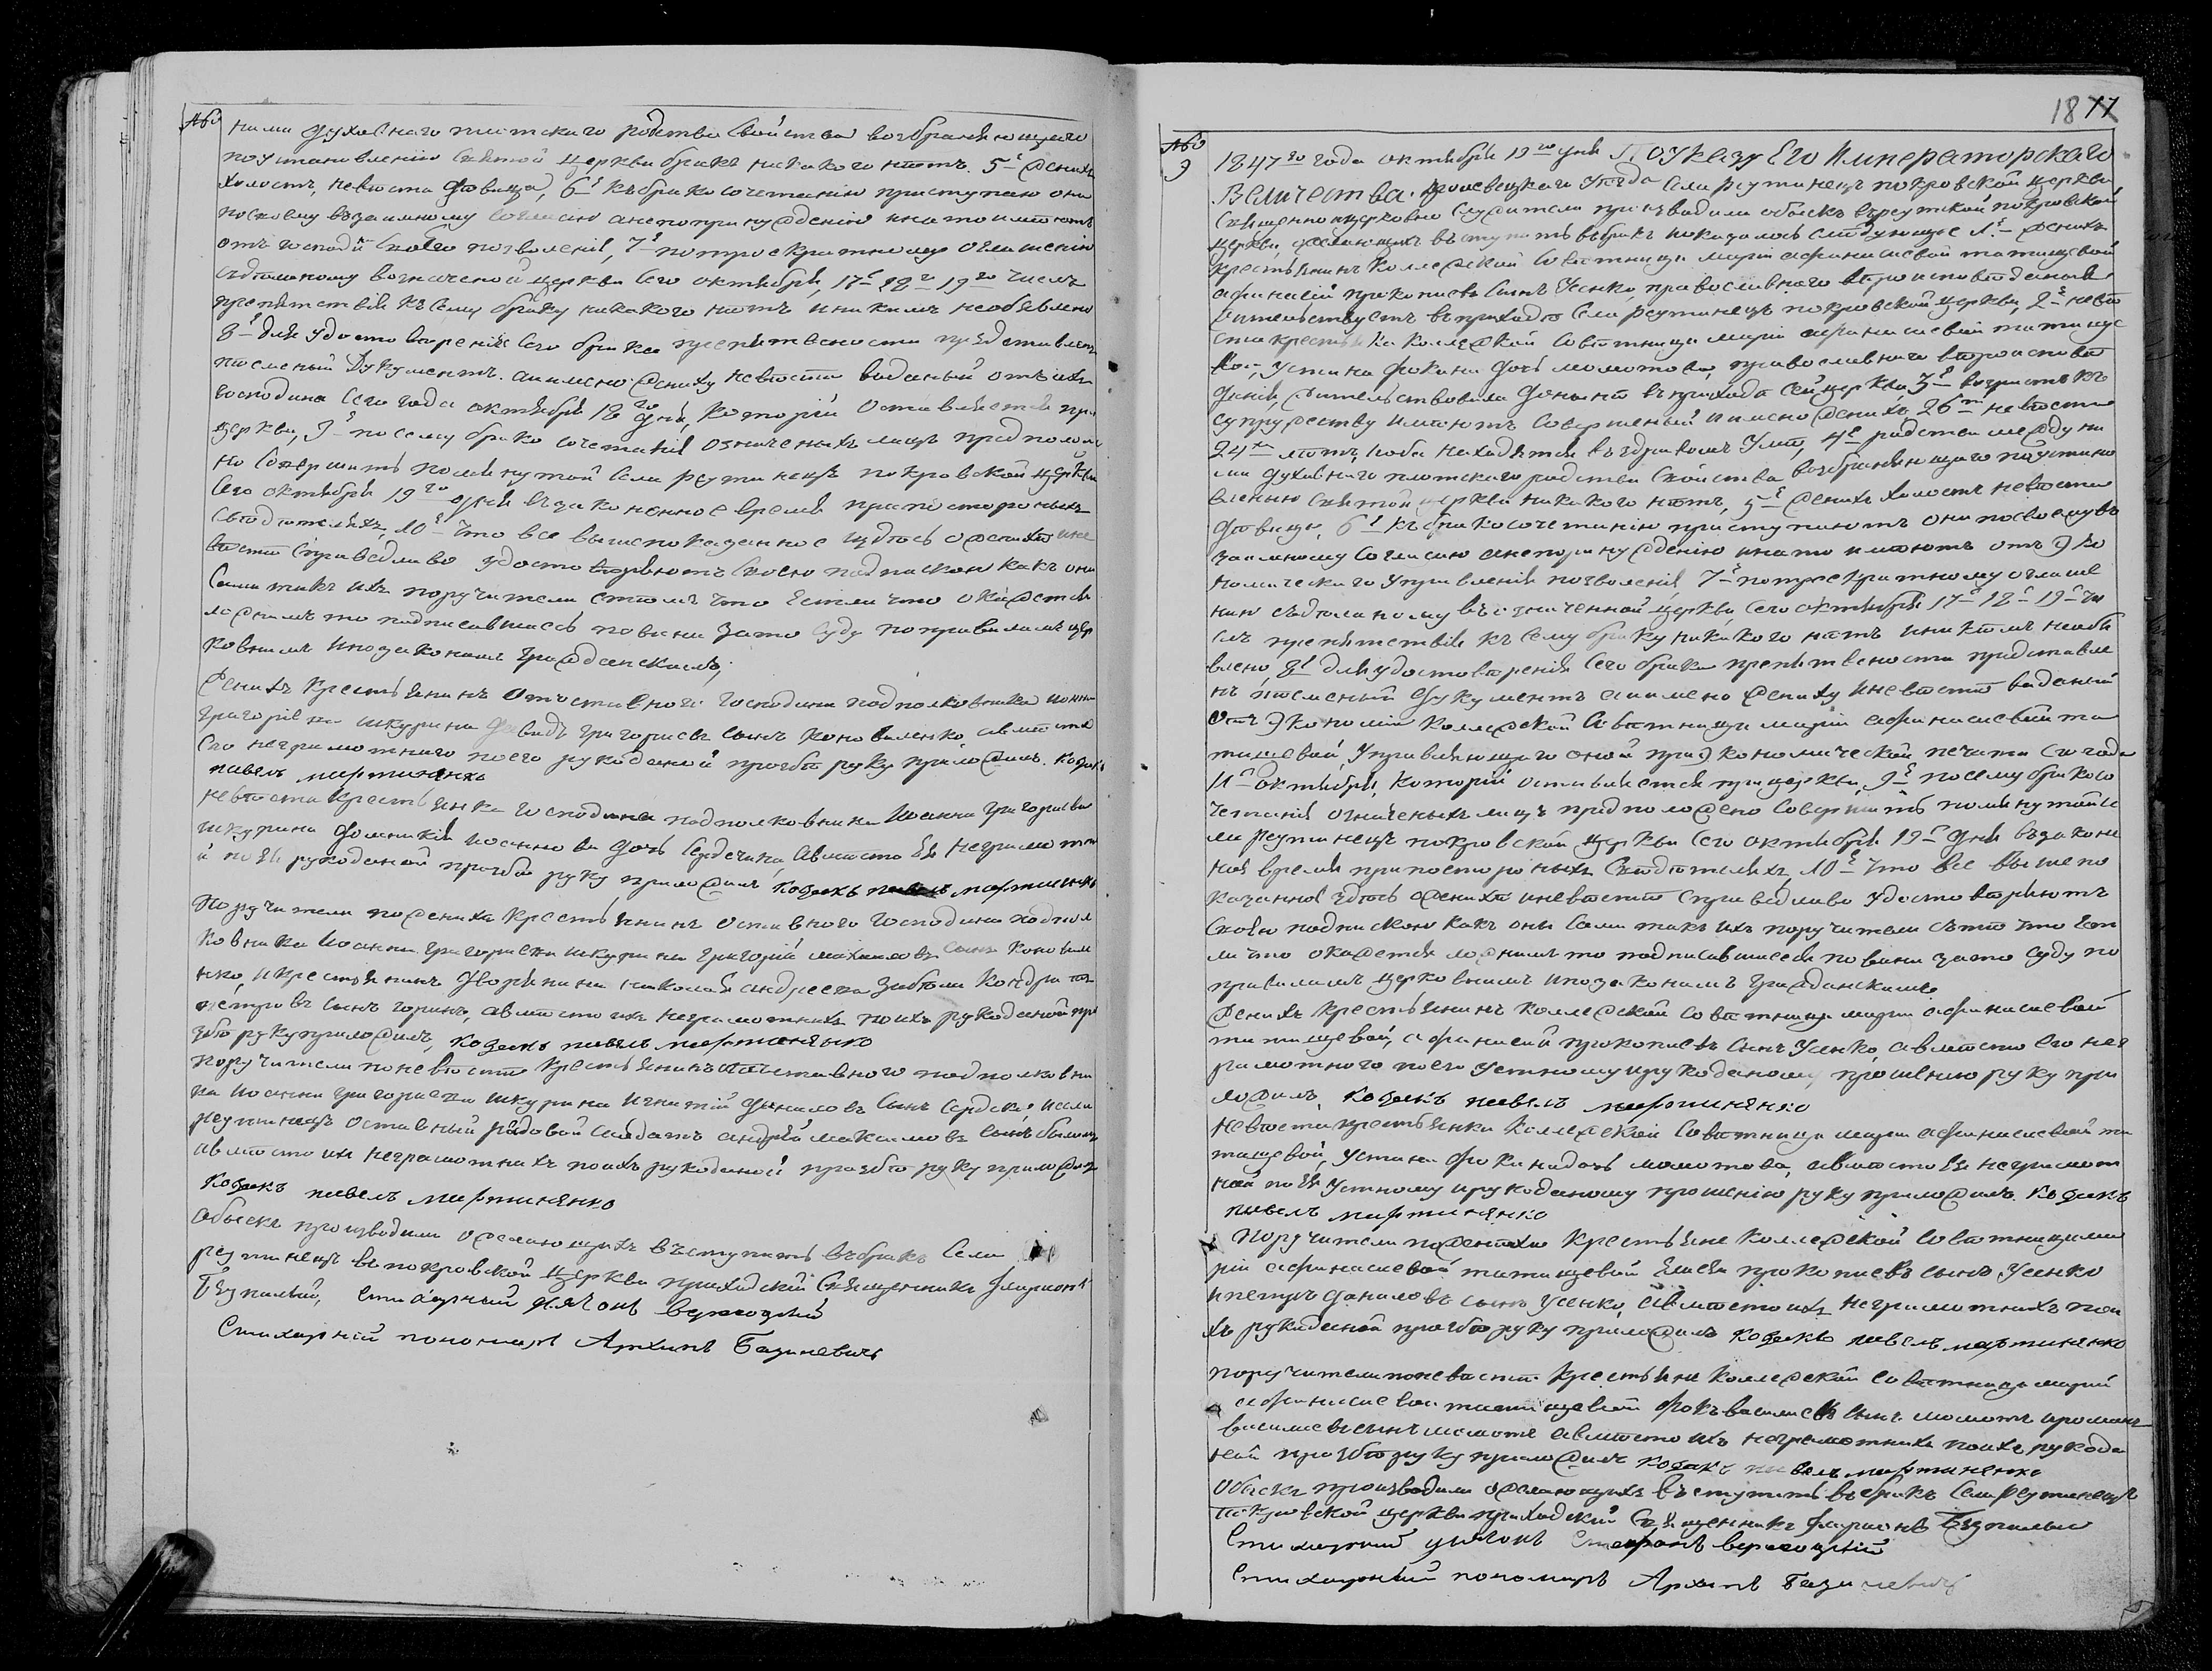 №
ними духовнаго плотскаго родства свойства возбраняющаго
поустановленію Святой Церкви бракъ никакого нѣтъ. 5е жених
холостъ, невѣста Дѣвица, 6е къбракосочетанію приступаю они
посвоему взаимному согласию анепопринуждению инато имѣютъ
отъ господъ позволеніе, 7е потроекратному оглашению
сдѣланому возначеной церкви сего октября, 17е 18го 19го числъ
препятствія ксему браку никакого нѣтъ иникимъ необявлено
8е для удостоверенія сего брака представленъ
писменый Документъ. аимено: жениху невѣсти виданый отъ ихъ
господина сего года октября 18го дня, которий оставляется при
церкви, 9е посему бракосочетанія озниченыхъ лицъ предположе
но Совершить помянутой села реутинецъ покровской церкви
сего октября 19го дня въ законенное время припостороныхъ
свѣдѣтеляхъ, 10е Что все вышепоказанное здѣсь ожених ине
вѣсти справедливо удостовѣряютъ своею подпискою какъ они
сами такъ ихъ поручители стѣмъ что Если что окажется
ложнимъ то подписавшиесь повини зато суду поправиламъ цер
ковнимъ ипозаконамъ Гражданскимъ,
Жених Крестьянинъ Отъставного Господина подполковника иоанн
григориева шкурина Давидъ григориевъ сынъ Коноваленко, авмѣсто
Его неграмотнаго поего рукоданой прозбѣ руку приложилъ. Козакъ
павелъ мартиненко
невѣста Крестьянка господина подполковника Иоанна григориева
шкурина иоаннова дочь Сердечина, авмѣсто Ея неграмотн
й поея рукоданой прозбѣ руку приложилъ Козакъ павелъ мартиненко
Поручители пожениха Крестьянинъ оставного Господина подпол
ковника Иоанна григориева шкурина Григорий михаиловъ сынъ Конавале
нко, икрестьянинъ Дворянина николая андреева забѣлы Кондратъ
петровъ сынъ горинъ, авмѣсто ихъ неграмотнихъ поихъ рукоданой про
збѣ руку приложилъ, Козакъ павелъ мартиненко
поручители поневѣсти Крестьянинъ отъставного подполковни
ка иоанна григориева шкурина игнатий даниловъ сынъ Сердюкъ исели
реутинецъ оставный рядовой салдатъ андрей максимовъ сынъ
авмѣсто ихъ неграмотнихъ поихъ рукоданой прозбѣ руку приложилъ
Козакъ павелъ мартиненко
обыскъ производили ожелающихъ въступить въбракъ села
реутинецъ въпокровской церкви приходский Священникъ Иларионъ
Бѣзпалый, Стихарный дячокъ вержоцкий
Стихарний пономаръ Архипъ Базилевичъ
1877
№
9
1847го года октября 19го дня ПОуказу Его Императорскаго
Величества. кролевецкаго Уѣзда села реутинецъ покровской церкви
Священноицерковно служители производили обыскъ въреутской покровской
церкви, желающихъ въступить въбракъ иоказалось слѣдующее 1е жених
крестьянинъ коллежской совѣтници марии афанасиевой татищевой
афанасий прокопиевъ сынъ Усенко, православнаго вѣроисповѣданія
жительствуетъ въприходѣ села реутинецъ покровской церкви, 2е невѣ
ста крестьянка коллежской совѣтници марии афанасиевой татище
вой, Устина фокина дочь моматова, православнаго вѣроисповѣ
данія, жительствовала донынѣ въприходѣ Сей церкви, 3е возрастъ къ
супружеству имѣютъ совершеный иимено жених 26ти невѣста
24хъ лѣтъ, иоба находятся въздравомъ Умѣ, 4е родства между ни
ми духовнаго плотскаго родства свойства возбраняющаго поустано
влению святой церкви никакого нѣтъ, 5е жених холостъ невѣста
дѣвица, 6е къбракосочетанію приступаютъ они посвоему въ
заимному согласию анепопринуждению инато имѣютъ отъ эко
номическаго управленія позволеніе, 7е потроекратному оглаше
нию сдѣланому въозначенной церкви, сего октября 17е 18е 19е чи
слъ препятствія къ сему браку никакого нѣтъ иникѣмъ необя
влено, 8е для удостовѣренія сего брака представле
нъ писменый документъ аимено жениху иневѣстѣ виданий
отъ экономии коллежской совѣтници марии афанасиевой та
тищевой, управляющаго оной приэкономической печати сего года
11е октября, которий оставляется прицеркви, 9е посему бракосо
четанія озниченыхъ лицъ предположено совершить помянутой се
ли реутинецъ покровской церкви сего октября 19е дня въ законе
ное время припостороныхъ свидѣтеляхъ, 10е что все вышепо
казанное здѣсь ожених иневѣсти справедливо удостовѣряютъ
своею подпискою какъ они сами такъ ихъ поручители стѣмъ что Есл
и что окажется ложнимъ то подписавшиеся повини зато суду по
правиламъ церковнимъ ипозаконамъ гражданскимъ
Жених крестьянинъ коллежской совѣтници марии афанасиевой
татищевой, афанасий прокопиевъ сынъ Усенко, авмѣсто его нег
рамотнаго поего устному ирукоданому прошению руку при
ложилъ, Козакъ павелъ мартиненко
невѣста крестьянка коллежской совѣтници марии афанасиевой та
тищевой, Устина фокина дочь моматова, авмѣсто Ея неграмот
ной поея Устному ирукоданому прошению руку приложилъ Козакъ
павелъ мартиненко
Поручители пожених Крестьяне коллежской совѣтници ма
рии афанасиевой татищевой Елисей прокопиевъ сынъ Усенко
ипетръ даниловъ сынъ Усенко, авмѣсто ихъ неграмотнихъ пои
хъ рукоданой прозбѣ руку приложилъ Козакъ павелъ мартиненко
поручители поневѣсти Крестьяни коллежской совѣтници марии
афанасиевой татищевой Фокъ василиевъ сынъ момотъ ироманъ
василиевъ сынъ момотъ авмѣсто ихъ неграмотнихъ поихъ рукода
ной прозбѣ руку приложилъ козакъ павелъ мартиненко
обыскъ производили ожелающихъ въступить въбракъ села реутинецъ
покровской церкви приходский Священникъ Иларионъ Бѣзпалый
Стихарний дячокъ Стефанъ вержоцкий
Стихарный пономаръ Архипъ Базилевичъ